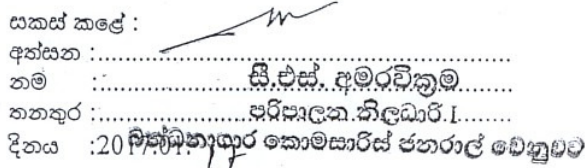 සකස් කළේ :
අත්සන :
නම : සී.එස්. අමරවික්‍රම
තනතුර : පරිපාලන නිලධාරී I
දිනය :2017.01. බන්ධනාගාර කොමසාරිස් ජනරාල් වෙනුවට